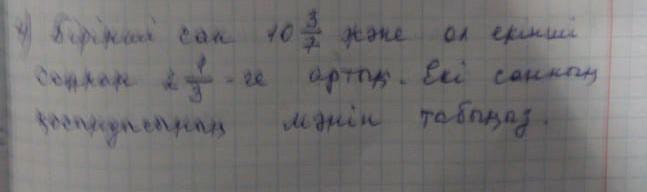 4) Бірінші сан 10 3/7 және ол екінші
саннан 2 1/3 -ге артық. Екі санның
қосындысының мәнін табыңыз.